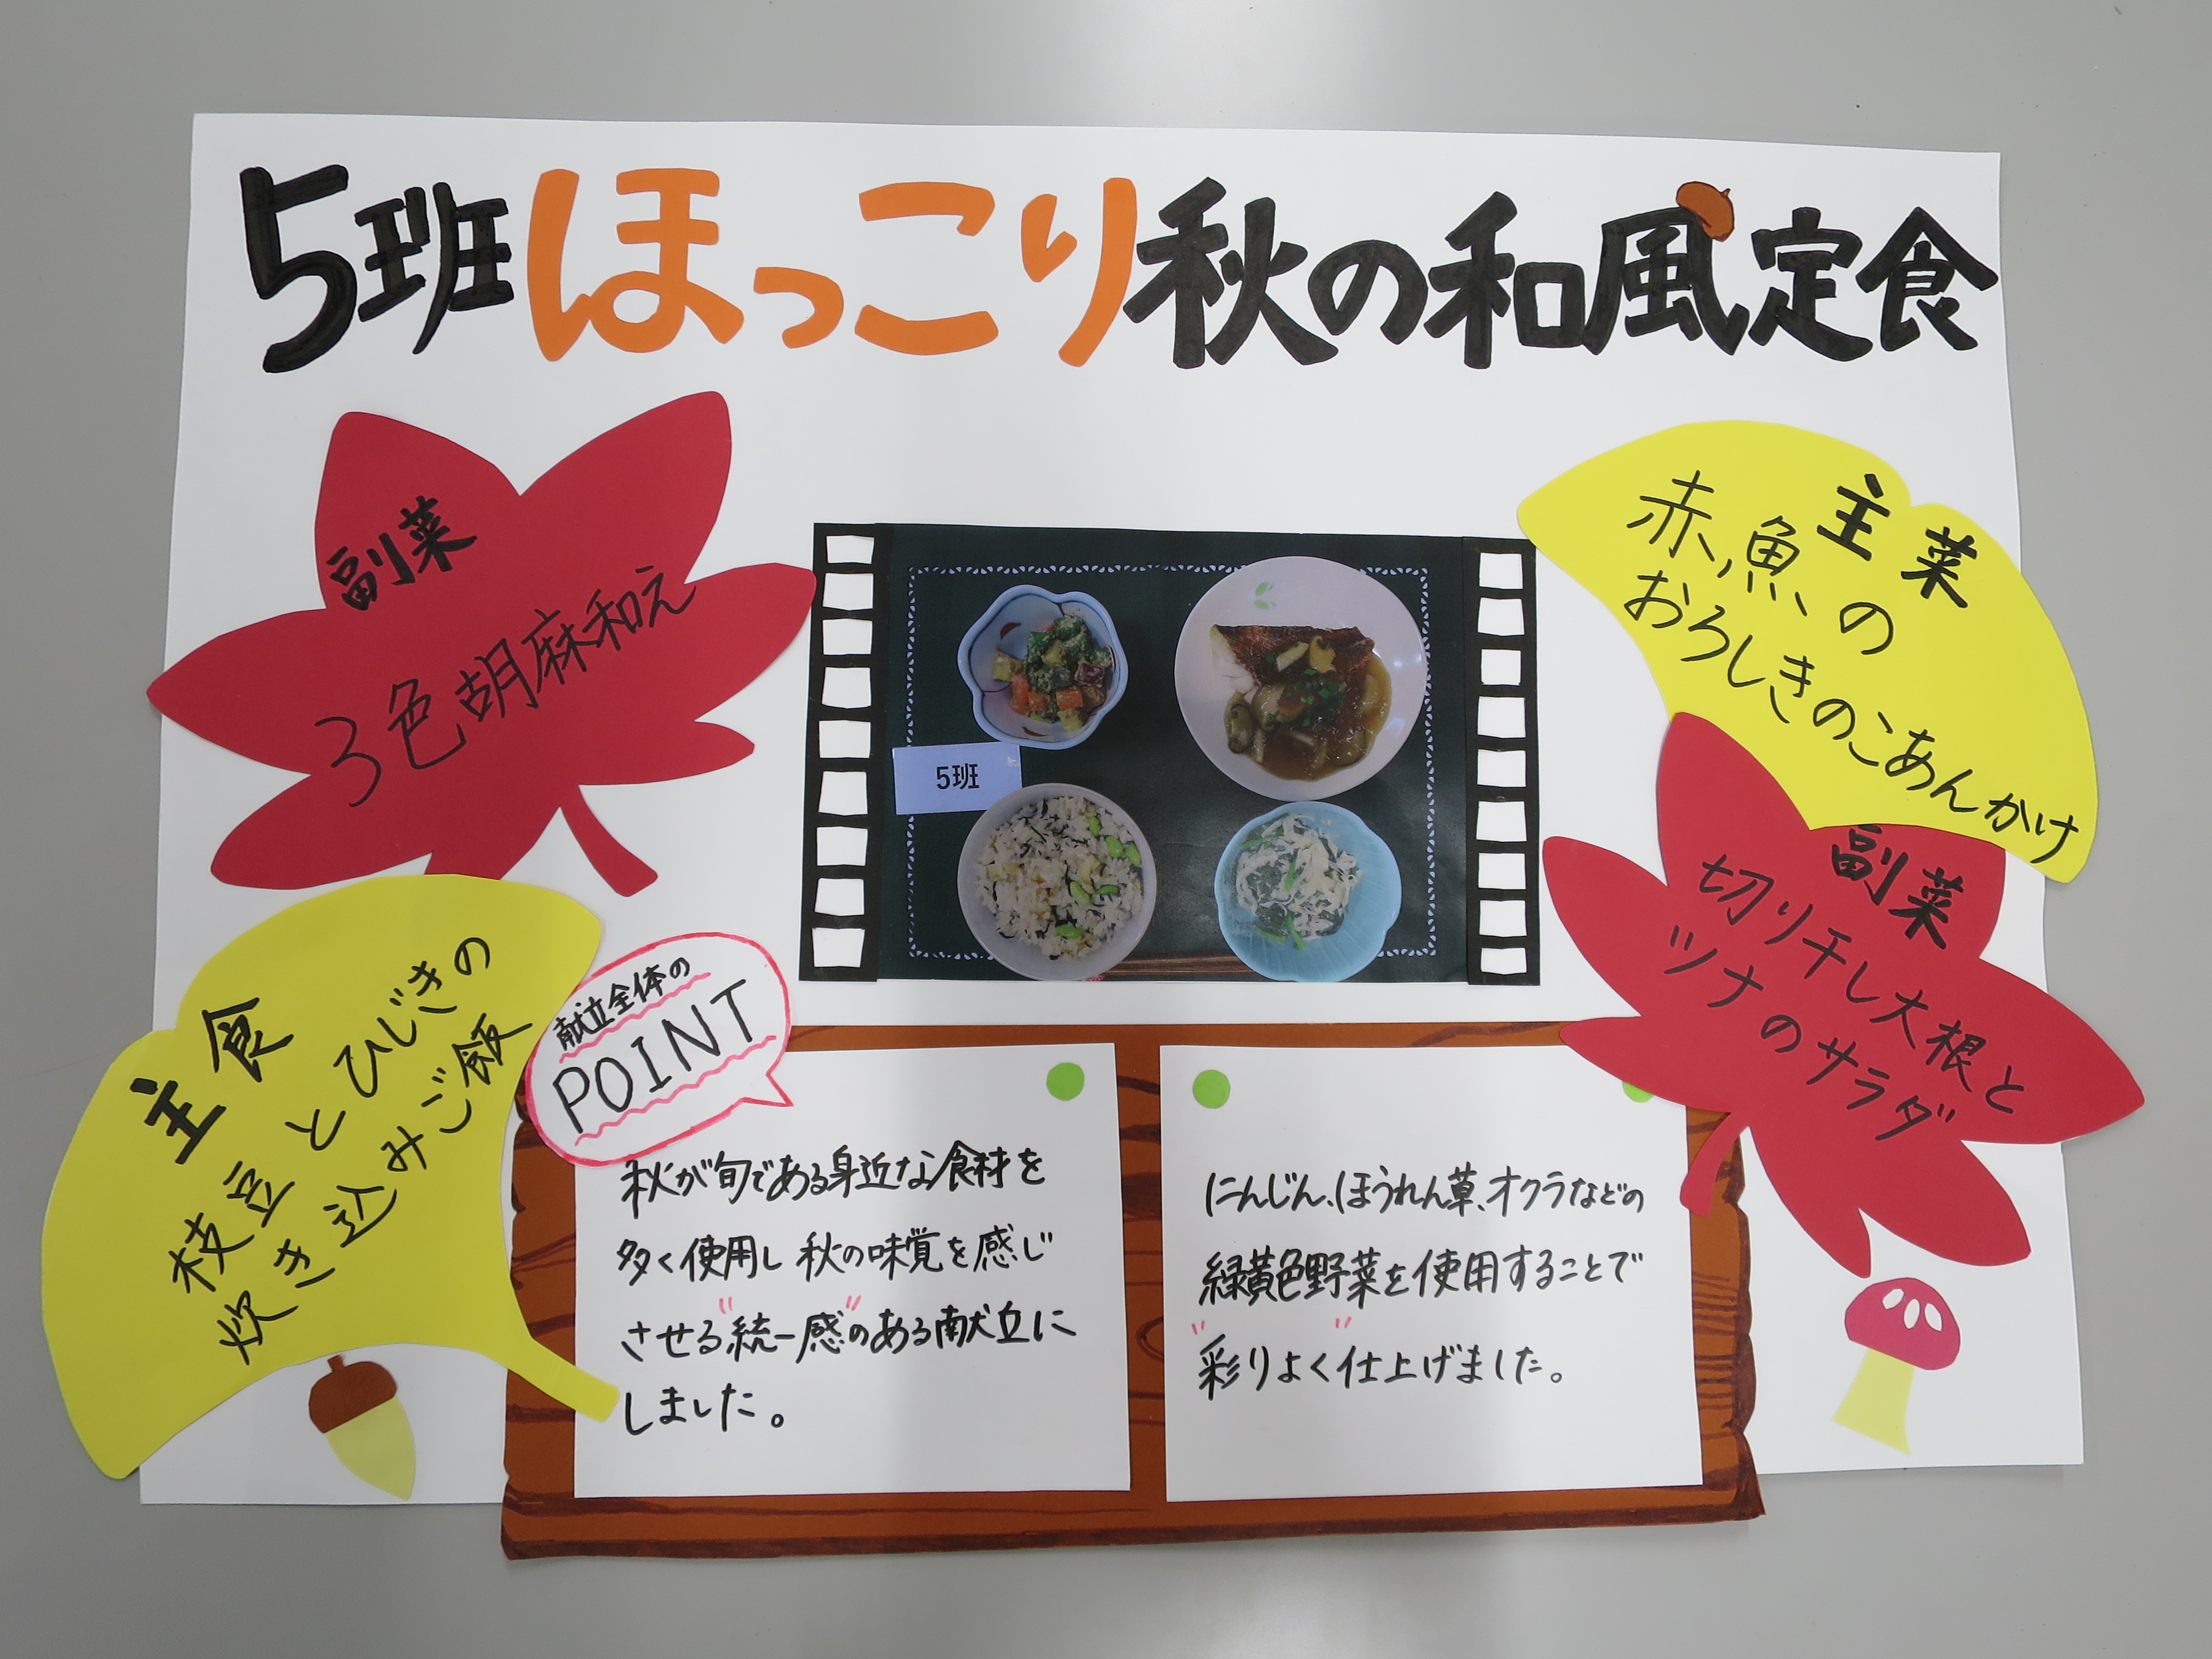 5班ほっこり秋の和風定食
副菜
3色胡麻和え
主菜
赤魚の
おろしきのこあんかけ
5班
副菜
切り干し大根と
ツナのサラダ
主食
枝豆とひじきの
炊き込みご飯
献立全体の
POINT
秋が旬である身近な食材を
多く使用し秋の味覚を感じ
させる"統一感"のある献立に
しました。
にんじん、ほうれん草、オクラなどの
緑黄色野菜を使用することで
"彩りよく"仕上げました。